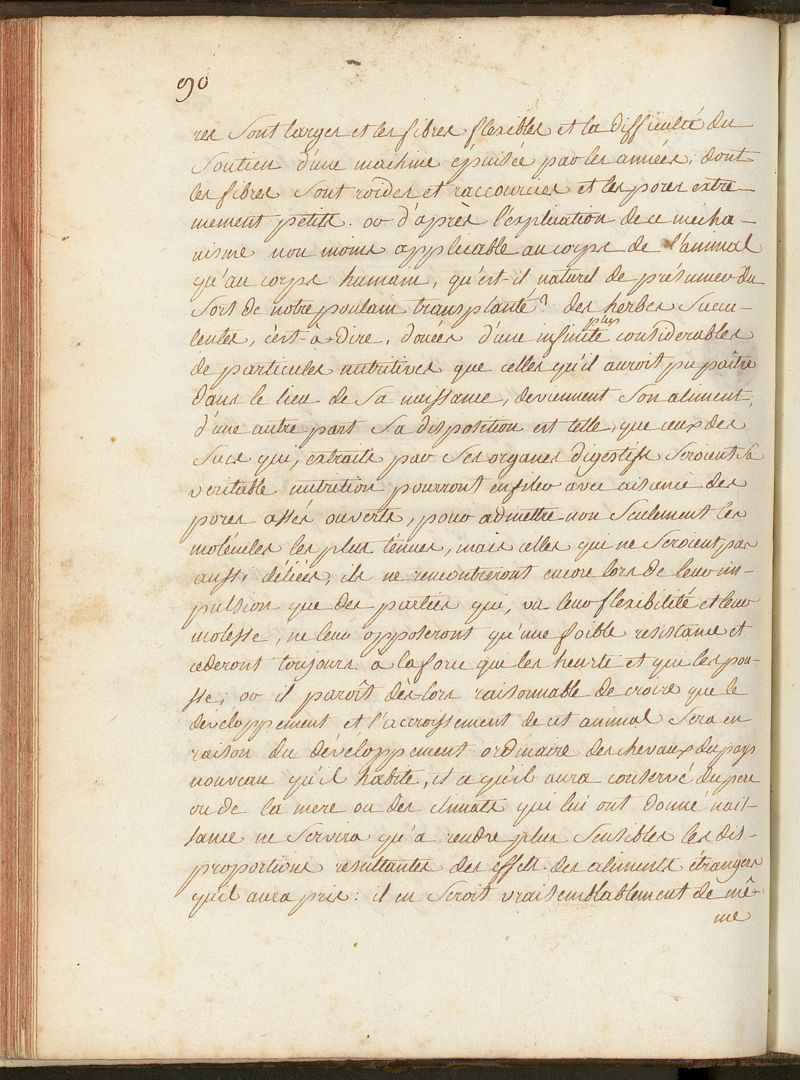 90
res sont larges et les fibres flexibles et la difficulté du
soutien d'une machine épuisée par les années, dont
les fibres sont roides et raccourcies et les pores extre-
mement petits. or d'après l'explication de ce mécha-
nisme non moins applicable au corps de l'animal
qu'au corps humain, qu'est-il naturel de présumer du
sort de notre poulain transplanté? des herbes succu-
lentes, c'est-à-dire, douées d'une infinité plus considerables
de particules nutritives que celles qu'il auroit pu paître
dans le lieu de sa naissance, deviennent son aliment;
d'une autre part sa disposition est telle, que ceux des
sucs qui, extraits par ses organes digestifs seroient sa
veritable nutrition pourront enfiler avec aisance des
pores assés ouverts, pour admettre non seulement les
molécules les plus ténues, mais celles qui ne seroient pas
aussi déliées, ils ne rencontreront encore lors de leur im-
pulsion que des parties qui, vu leur flexibilité et leur
molesse, ne leur opposeront qu'une foible resistance et
cederont toujours à la force qui les heurte et qui les pou-
sse; or il paroît dès-lors raisonnable de croire que le
développement et l'accroissement de cet animal sera en
raison du développement ordinaire des chevaux du pays
nouveau qu'il habite, et ce qu'il aura conservé du pere
ou de la mere ou des climats qui lui ont donné nais-
sance ne servira qu'à rendre plus sensibles les dis-
proportions resultantes des effets des aliments étrangers
qu'il aura pris: il en seroit vraisemblablement de mê-
me